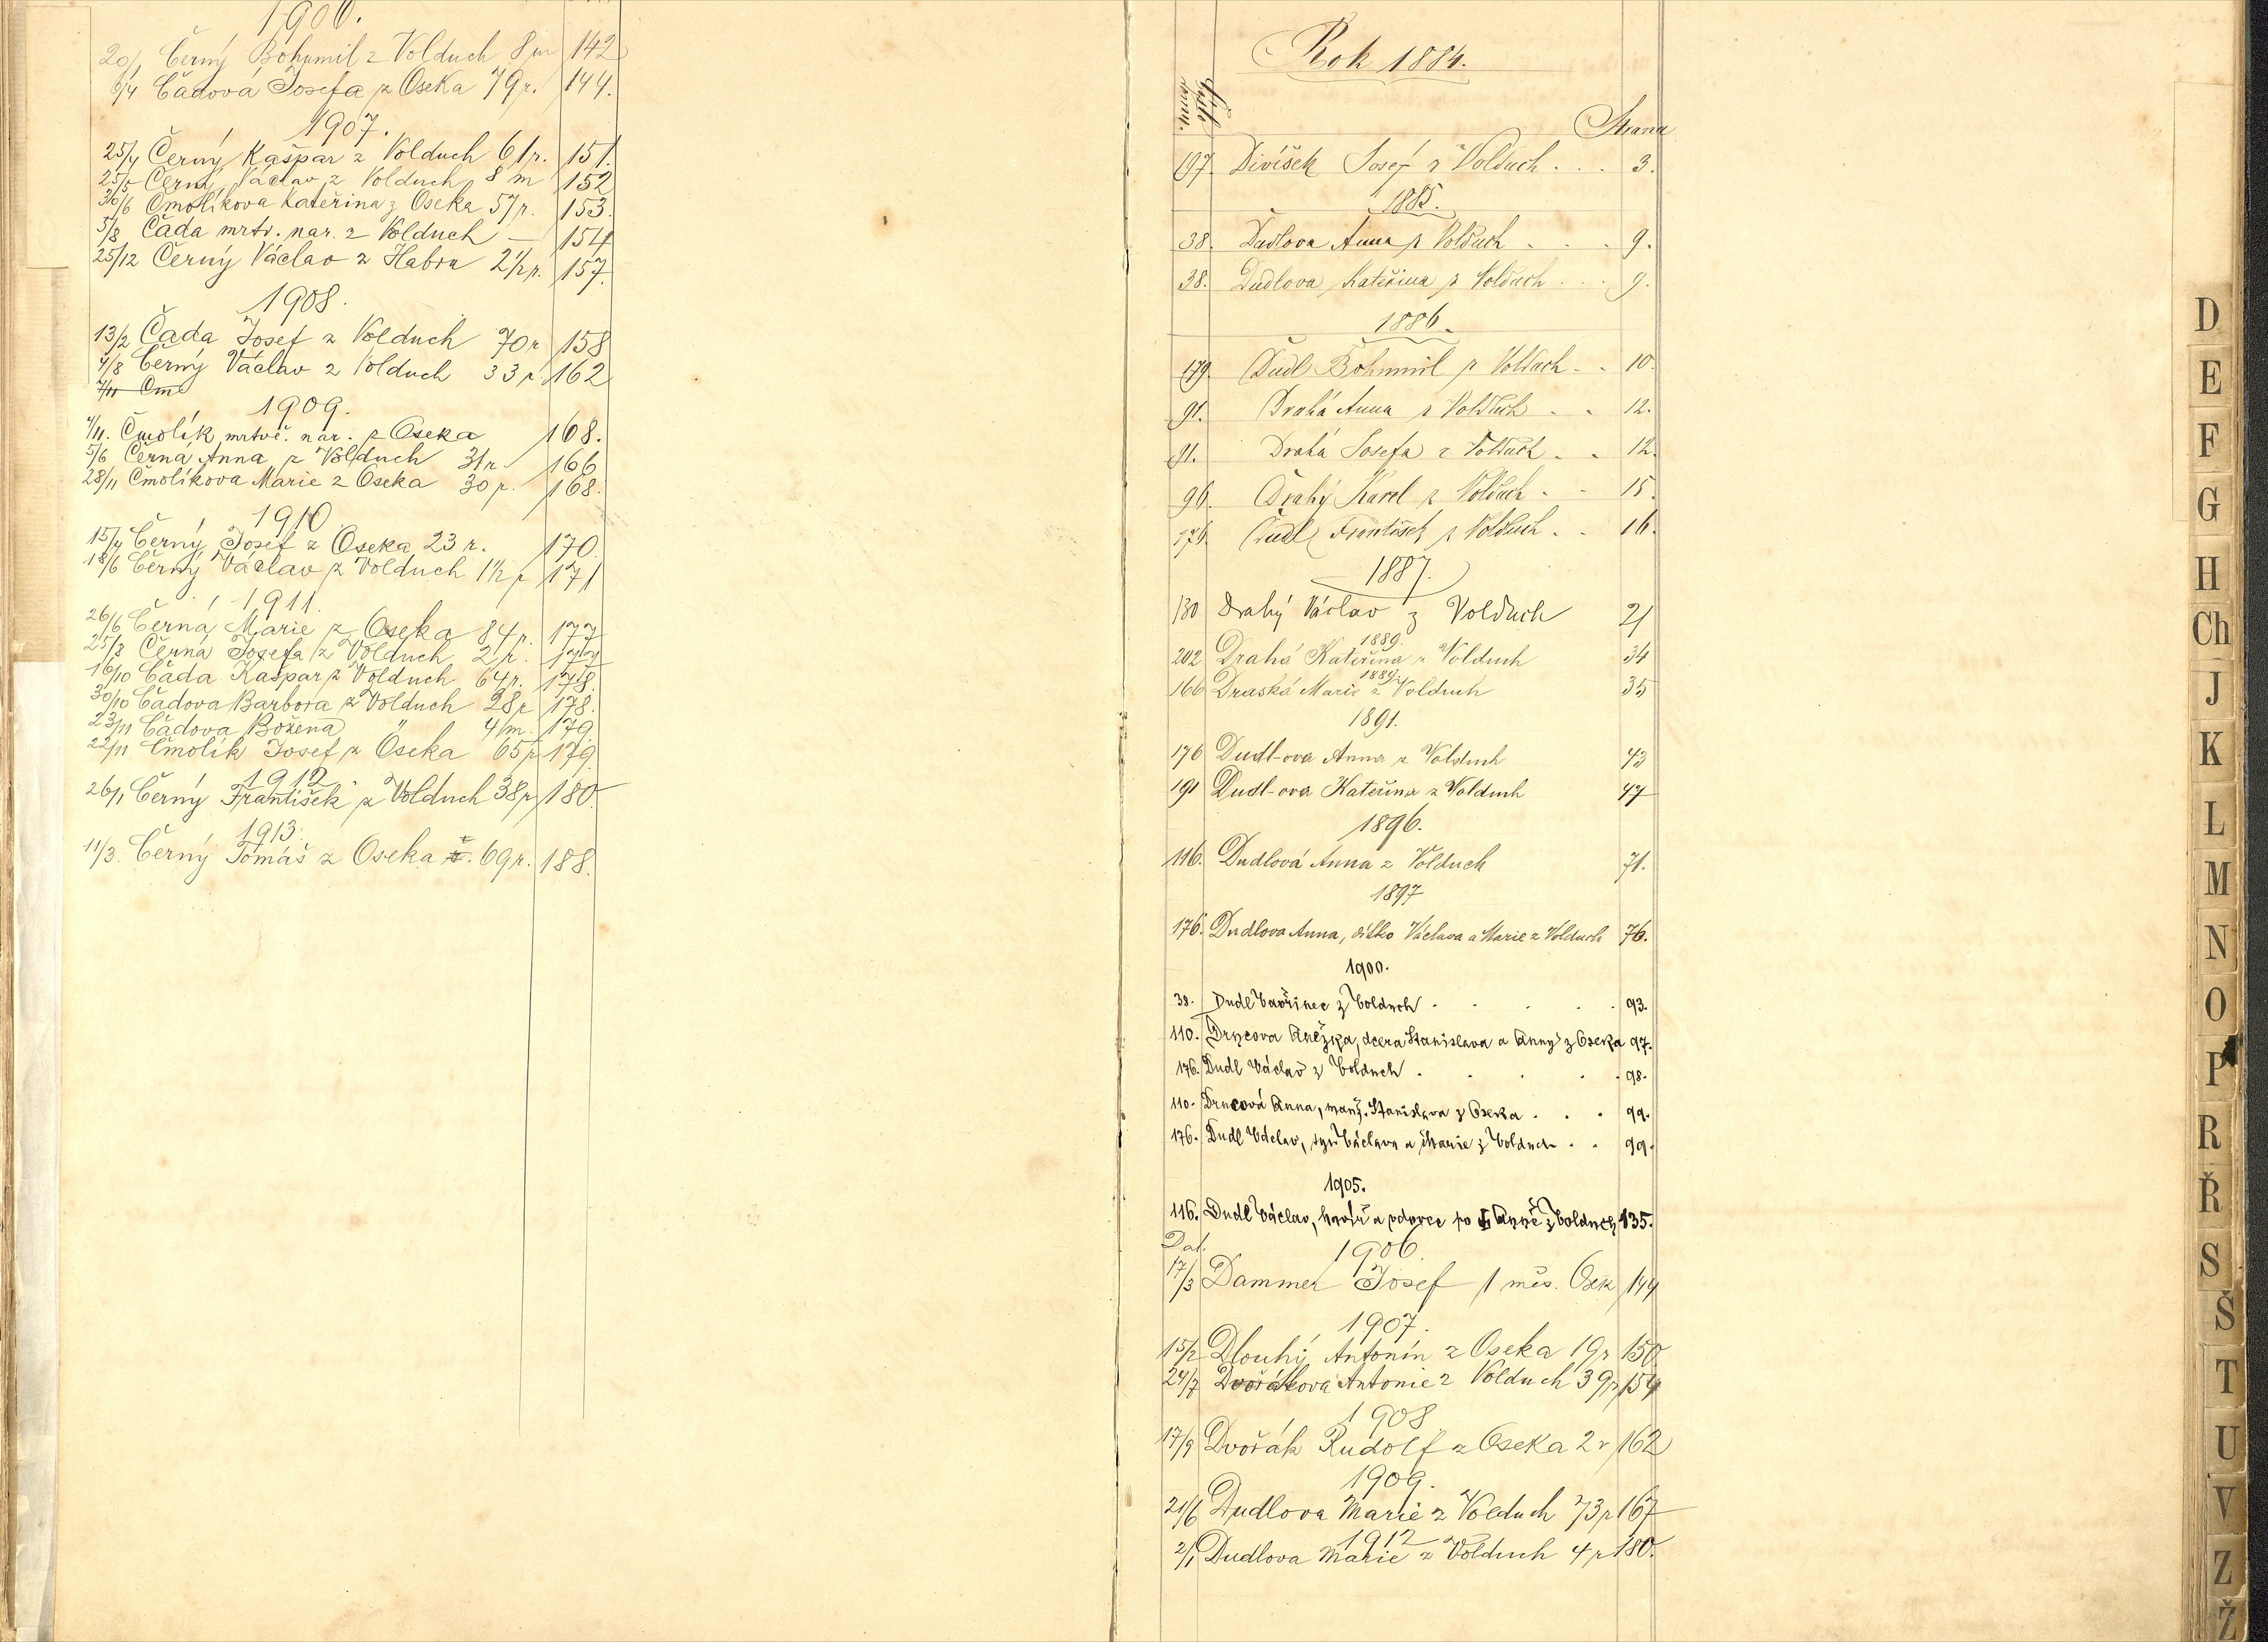 1906.
20/1 Černý Bohumil z Volduch 8 m 142
6/4 Čadová Josefa z Oseka 79 r. 144.
1907.
25/4 Černý Kašpar z Volduch 61 r. 151.
25/5 Černý Václav z Volduch 8 m 152
30/6 Čmolíkova Kateřina z Oseka 57 r. 153.
5/8 Čada mrtv. nar. z Volduch — 154
25/12 Černý Václav z Habra 2 1/2 r. 157.
1908.
13/2 Čada Josef z Volduch 70 r 158
4/8 Černý Václav z Volduch 33 r. 162
7/11 Čmo
1909.
4/11. Čmolík mrtvě. nar. z Oseka 168.
5/6 Černá Anna z Volduch 31 r. 166
28/11 Čmolíkova Marie z Oseka 30 r. 168.
1910
15/4 Černý Josef z Oseka 23 r. 170.
18/6 Černý Václav z Volduch 1 1/2 r 171
1911.
26/6 Černá Marie z Oseka 84 r. 177
25/8 Černá Josefa z Volduch 2 r. 177
16/10 Čada Kašpar z Volduch 64 r. 178.
30/10 Čadova Barbora z Volduch 28 r 178.
23/11 Čadova Božena " 4 m. 179
22/11 Čmolík Josef z Oseka 65 r 179.
1912
26/1 Černý František z Volduch 38 r 180.
1913.
11/3. Černý Tomáš z Oseka 69 r. 188.
Rok 1884.
Číslo domu. Strana
197. Divíšek Josef z Volduch . . . 3.
1885.
38. Dudlova Anna z Volduch . . . 9.
38. Dudlova Kateřina z Volduch . . . 9.
1886.
179. Dudl Bohumil z Volduch . . 10.
91. Drahá Anna z Volduch . . 12.
91. Drahá Josefa z Volduch . . 12.
96. Drahý Karel z Volduch . . 15.
176. Dudl František z Volduch . . 16.
1887.
130 Drahý Václav z Volduch 21
1889.
202 Drahá Kateřina z Volduch 34
1889.
166 Draská Marie z Volduch 35
1891.
176 Dudl-ova Anna z Volduch 43
191 Dudl-ova Kateřina z Volduch 47
1896.
116. Dudlová Anna z Volduch 71.
1897
176. Dudlova Anna, dítko Václava a Marie z Volduch 76.
1900.
38. Dudl Vavřinec z Volduch . . . . 93.
110. Drncova Anežka, dcera Stanislava a Anny z Oseka 97.
176. Dudl Václav z Volduch . . . . . 98.
110. Drncová Anna, manž. Stanislava z Oseka . . . 99.
176. Dudl Václav, syn Václava a Marie z Volduch . . 99.
1905.
116. Dudl Václav, havíř a vdovec po Anně z Volduch 135.
Dat. 1906.
17/3 Dammer Josef 1 měs. Osek 144
1907.
15/2 Dlouhý Antonín z Oseka 19 r 150
24/7 Dvořákova Antonie z Volduch 39 r 154
1908
17/9 Dvořák Rudolf z Oseka 2 r 162
1909.
21/6 Dudlova Marie z Volduch 73 r 167
1912
2/1 Dudlova Marie z Volduch 4 r 180.
D
E
F
G
H
Ch
J
K
L
M
N
O
P
R
Ř
S
Š
T
U
V
Z
Ž